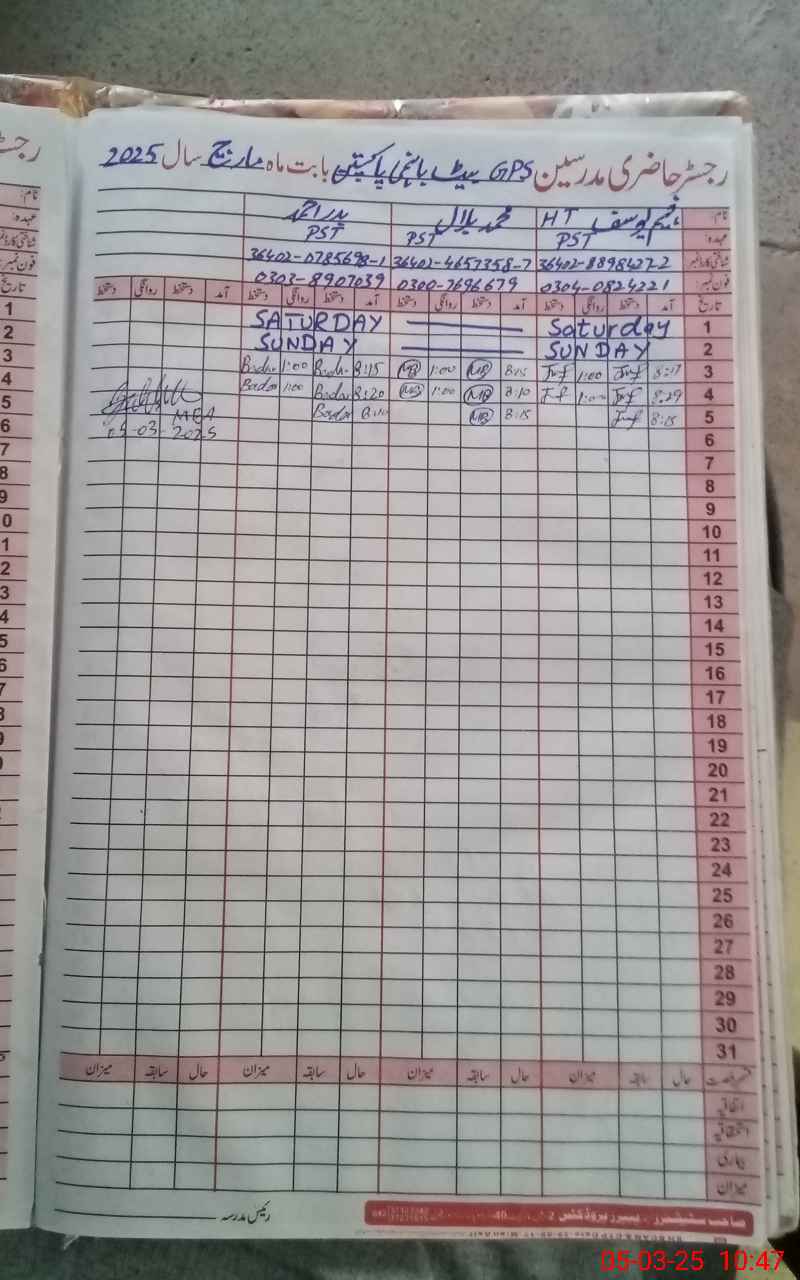 رجسٹر حاضری مدرسین GPS بابت ماہ مارچ سال 2025
نام: یوسف HT محمد بلال بدر احمد
عہدہ: PST PST PST
شناختی کارڈ نمبر 36402-8898427-2 36402-4657358-7 36402-0785698-1
فون نمبر: 0304-0824221 0300-7696679 0303-8907039
تاریخ آمد دستخط روانگی دستخط آمد دستخط روانگی دستخط آمد دستخط روانگی دستخط آمد دستخط روانگی دستخط
1 Saturday SATURDAY
2 SUNDAY SUNDAY
3 8:17 1:00 8:15 MB 1:00 MB 8:15 Badar 1:00 Badar
4 8:29 1:00 8:10 MB 1:00 MB 8:20 Badar 1:00 Badar
5 8:15 8:15 MB 8:10 Badar
MEA
05-03-2025
6
7
8
9
10
11
12
13
14
15
16
17
18
19
20
21
22
23
24
25
26
27
28
29
30
31
حال سابقہ میزان حال سابقہ میزان حال سابقہ میزان حال سابقہ میزان
اتفاقیہ
استحقاقیہ
بیماری
میزان
رئیس مدرسہ
05-03-25 10:47